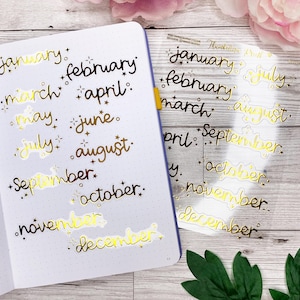 january
february
march
april
may
june
july
august
September
october
november
december
january
july
february
august
march
april
September
october
november
december